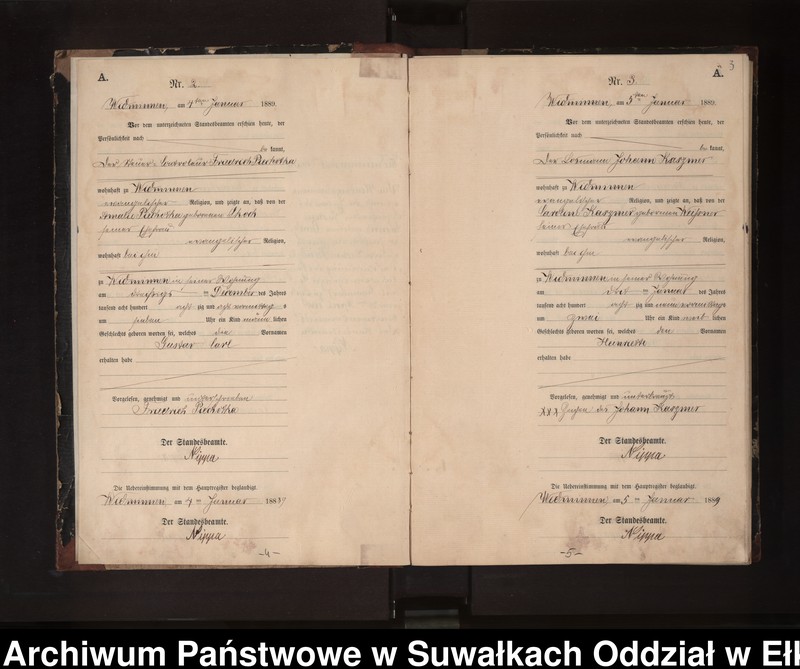 A.
Nr. 2.
Widminnen, am 4ten Januar 1889.
Vor dem unterzeichneten Standesbeamten erschien heute, der
Persönlichkeit nach
be kannt,
Der Friedrich Piechotka
wohnhaft zu Widminnen
evangelischer Religion, und zeigte an, daß von der
Piechotka geborenen
seiner Ehefrau
evangelischer Religion,
wohnhaft bei ihm
zu Widminnen in seiner Wohnung
am ten December des Jahres
tausend acht hundert acht zig und acht s
um Uhr ein Kind männ lichen
Geschlechts geboren worden sei, welches die Vornamen
Gustav Carl
erhalten habe
Vorgelesen, genehmigt und unterschrieben
Friedrich Piechotka
Der Standesbeamte.
Nippa
Die Uebereinstimmung mit dem Hauptregister beglaubigt.
Widminnen am 4ten Januar 1889
Der Standesbeamte.
Nippa
-4-
3
A.
Nr. 3.
Widminnen, am 5ten Januar 1889.
Vor dem unterzeichneten Standesbeamten erschien heute, der
Persönlichkeit nach
be kannt,
Der Losmann Johann Kaszmer
wohnhaft zu Widminnen
evangelischer Religion, und zeigte an, daß von der
Kaszmer geborenen
seiner Ehefrau
evangelischer Religion,
wohnhaft bei ihm
zu Widminnen in seiner Wohnung
am ten Januar des Jahres
tausend acht hundert acht zig und neun
um Uhr ein Kind weib lichen
Geschlechts geboren worden sei, welches den Vornamen
Henriette
erhalten habe
Vorgelesen, genehmigt und unterkreuzt
XXX des Johann Kaszmer
Der Standesbeamte.
Nippa
Die Uebereinstimmung mit dem Hauptregister beglaubigt.
Widminnen, am 5ten Januar 1889
Der Standesbeamte.
Nippa
-5-
Archiwum Państwowe w Suwałkach Oddział w Eł